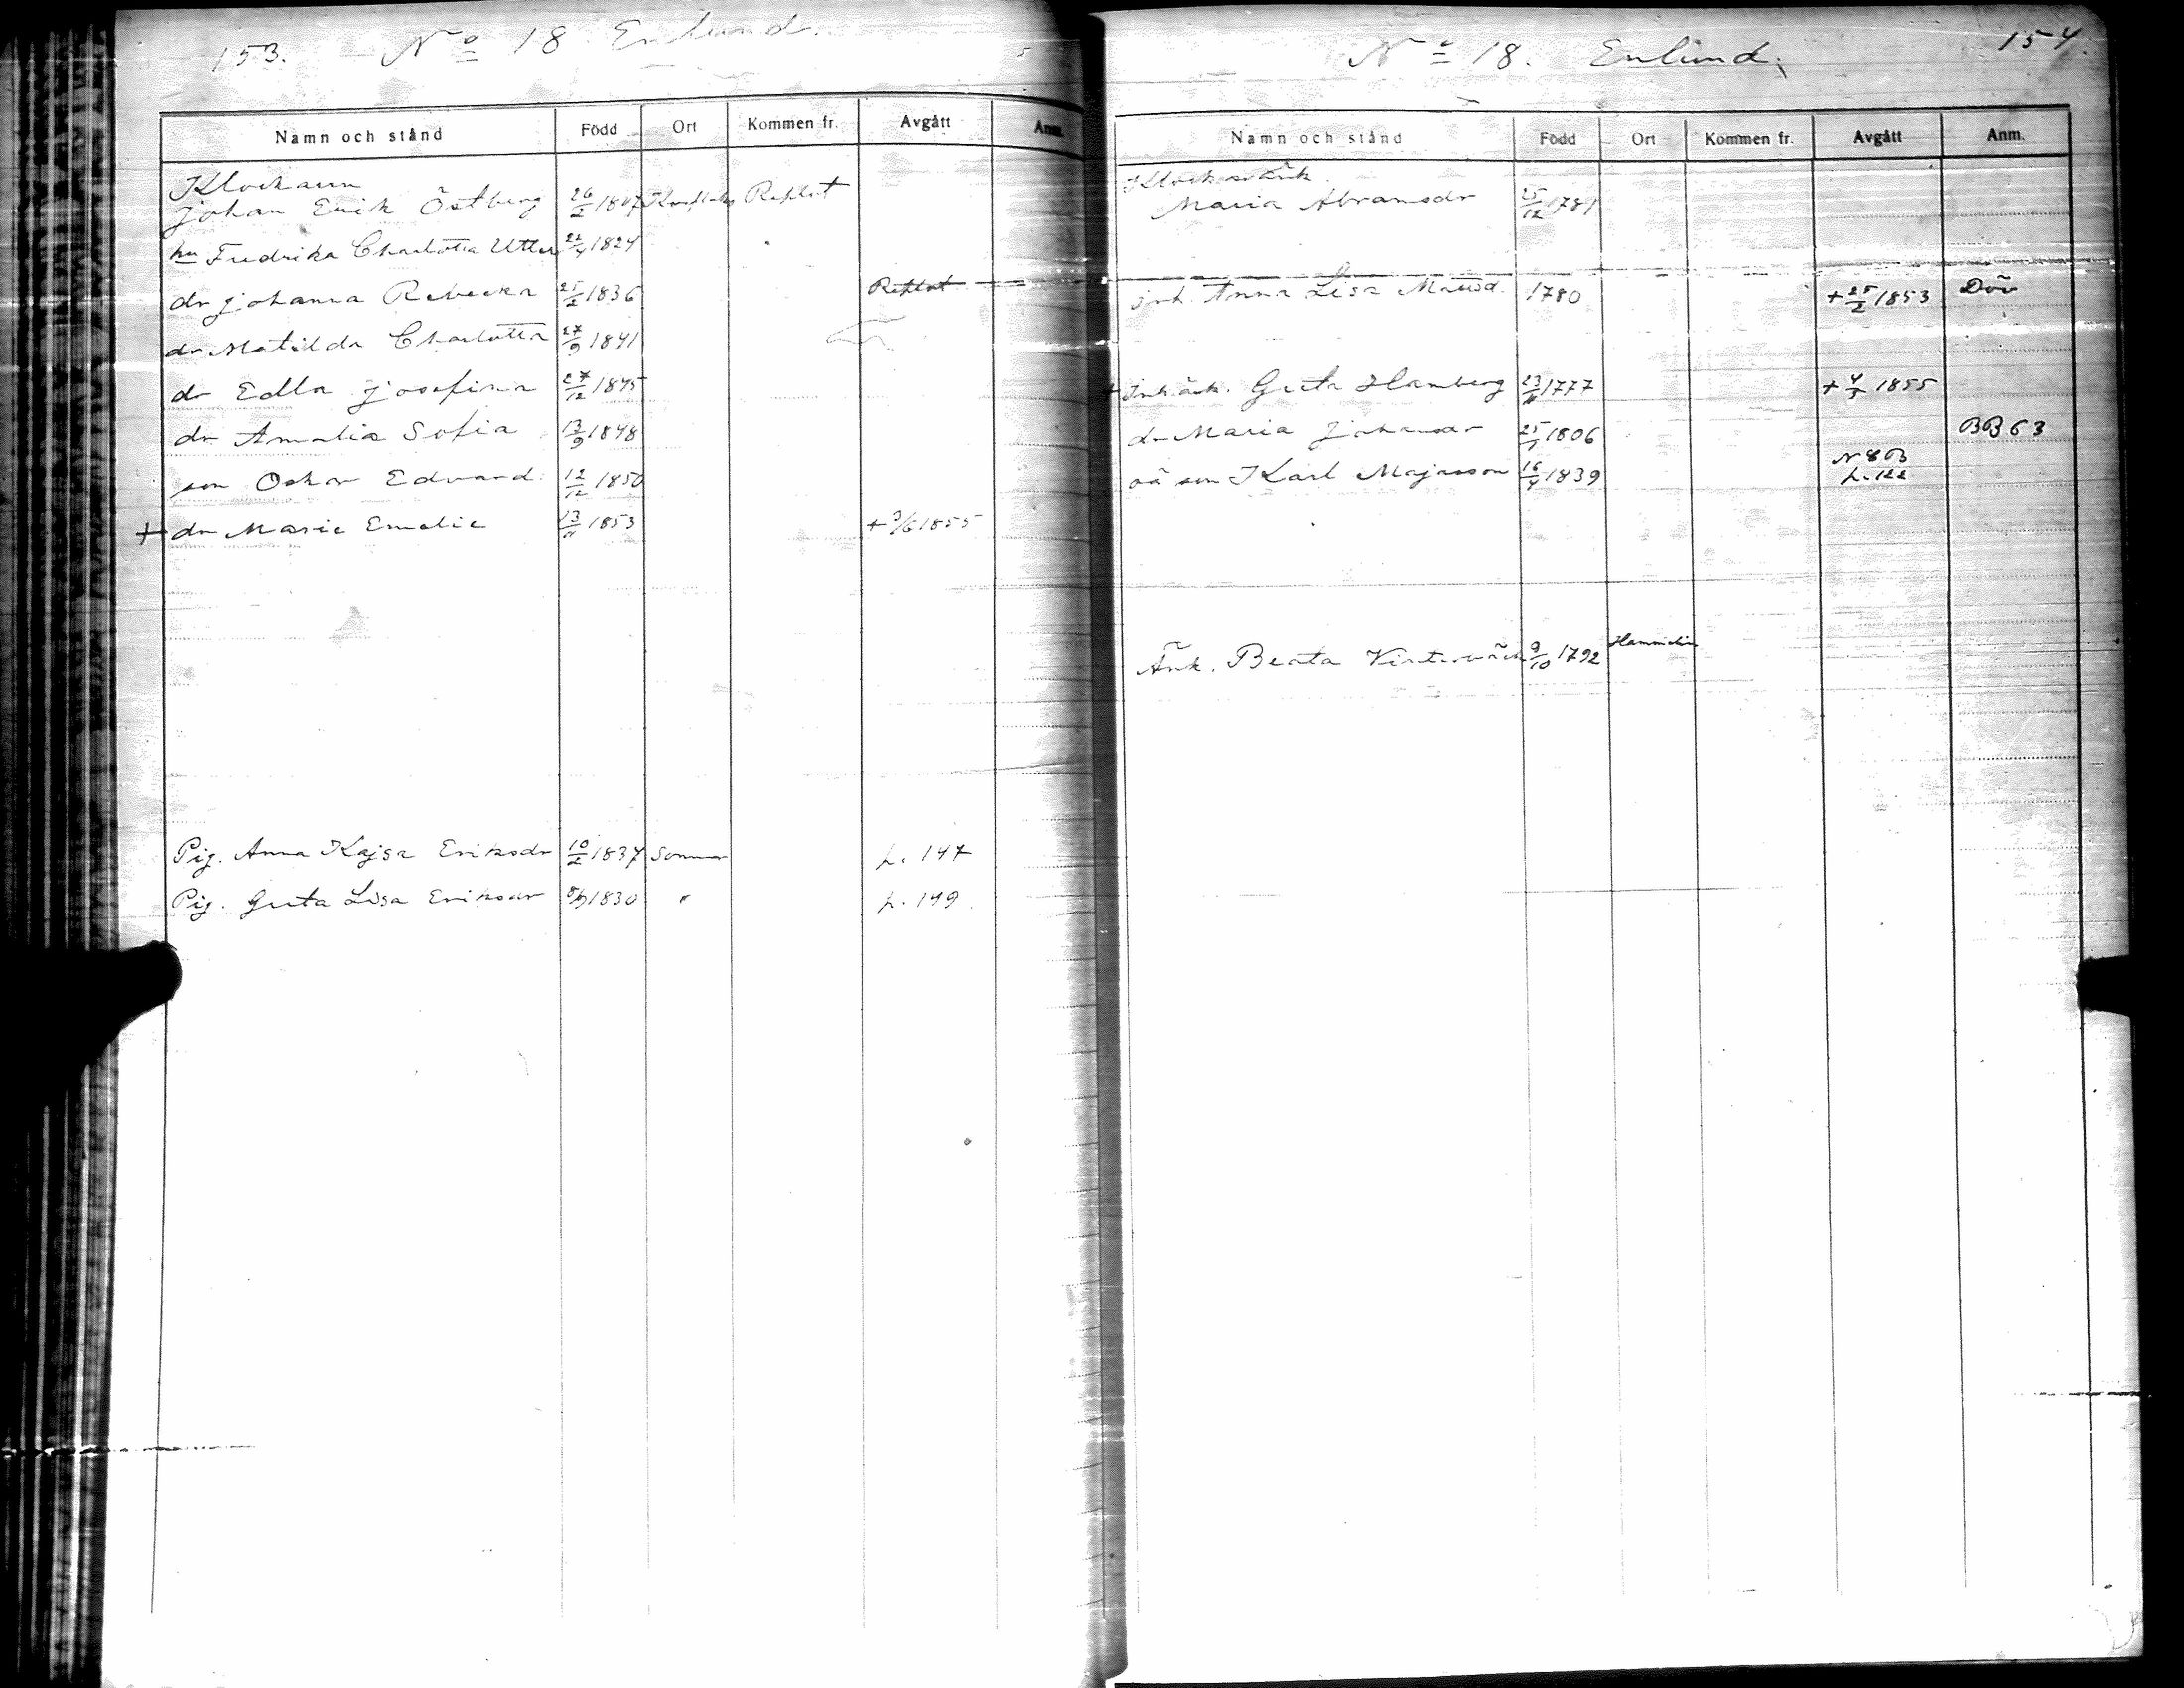 153. No 18 Enlund.
Namn och stånd Född Ort Kommen fr. Avgått Anm.
Klockaren
Johan Erik Östberg 26/2 1807 Replot
hu Fredrika Charlotta Utter 22/4 1824
dr Johanna Rebecka 25/2 1836 Replot
dr Matilda Charlotta 27/9 1841
dr Edla Josefina 27/12 1845
dr Amalia Sofia 13/9 1848
son Oskar Edvard 12/12 1850
+ dr Maria Emelie 13/11 1853 + 3/6 1855
Pig. Anna Kajsa Eriksdr 10/2 1837 Sommar L. 147
Pig. Greta Lisa Eriksdr 1830 " L. 149
No 18. Enlund. 154.
Namn och stånd Född Ort Kommen fr. Avgått Anm.
Klockareänk.
Maria Abramsdr 25/12 1781
inh. Anna Lisa Matsd. 1780 + 25/2 1853 Döv
+ Inh.änk. Greta Hamberg 23/11 1777 + 4/5 1855
dr Maria Johansdr 25/7 1806 BB 63
oä son Karl Majasson 16/4 1839 N 803
L. 122
Änk. Beata 9/10 1792